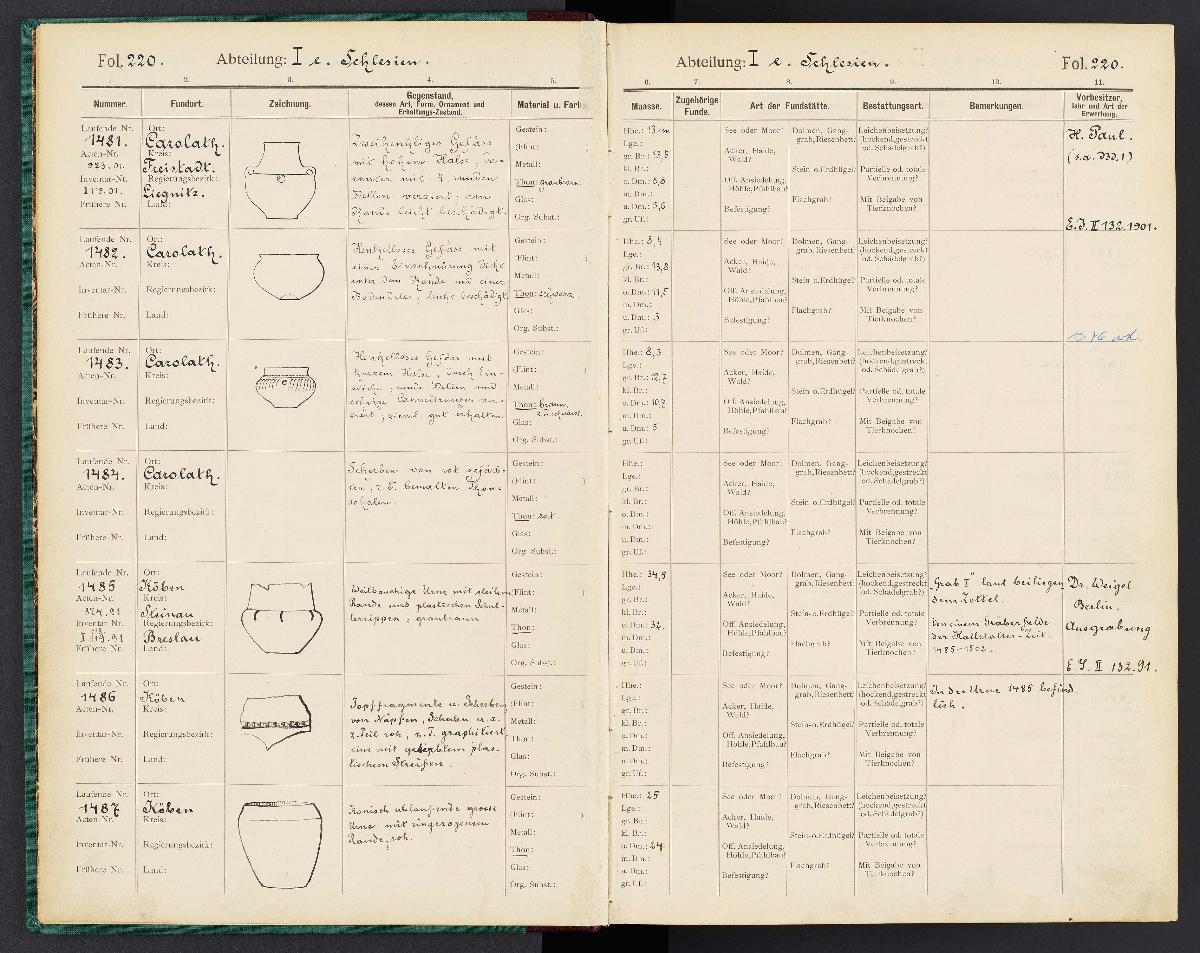 Fol. 220. Abteilung: I e. Schlesien.
1. 2. 3. 4. 5.
Nummer. Fundort. Zeichnung. Gegenstand, dessen Art, Form, Ornament und Erhaltungs-Zustand. Material u. Farb
Laufende Nr. 1481.
Acten-Nr. 923.01.
Inventar-Nr. I 119.01.
Frühere Nr.
Ort: Carolath.
Kreis: Freistadt.
Regierungsbezirk: Liegnitz.
Land:
Zweihenkliges Gefäss
mit hohem Halse, da-
runter mit 7 runden
Dellen verziert; am
Rande leicht beschädigt.
Gestein:
(Flint: )
Metall:
Thon: graubraun.
Glas:
Org. Subst.:
Laufende Nr. 1482.
Acten-Nr.
Inventar-Nr.
Frühere Nr.
Ort: Carolath.
Kreis:
Regierungsbezirk:
Land:
Henkelloses Gefäss mit
einer Einschnürung dicht
unter dem Rande und einer
Bodendelle; leicht beschädigt.
Gestein:
(Flint: )
Metall:
Thon: schwarz.
Glas:
Org. Subst.:
Laufende Nr. 1483.
Acten-Nr.
Inventar-Nr.
Frühere Nr.
Ort: Carolath.
Kreis:
Regierungsbezirk:
Land:
Henkelloses Gefäss mit
kurzem Halse, durch Ein-
stiche, runde Dellen und
schräge Cannelirungen ver-
ziert; zieml. gut erhalten.
Gestein:
(Flint: )
Metall:
Thon: braun,
z. T. schwärzl.
Glas:
Org. Subst.:
Laufende Nr. 1484.
Acten-Nr.
Inventar-Nr.
Frühere Nr.
Ort: Carolath.
Kreis:
Regierungsbezirk:
Land:
Scherben von rot gefärb-
ten, z. T. bemalten Thon-
schalen.
Gestein:
(Flint: )
Metall:
Thon: rot.
Glas:
Org. Subst.:
Laufende Nr. 1485
Acten-Nr. 574.91
Inventar-Nr. I 119.91
Frühere Nr.
Ort: Köben
Kreis: Steinau
Regierungsbezirk: Breslau
Land:
Weitbauchige Urne mit steilem
Rande und plastischen Schul-
terrippen; graubraun
Gestein:
(Flint: )
Metall:
Thon:
Glas:
Org. Subst.:
Laufende Nr. 1486
Acten-Nr.
Inventar-Nr.
Frühere Nr.
Ort: Köben
Kreis:
Regierungsbezirk:
Land:
Topffragmente u. Scherben
von Näpfen, Schalen u. a.
z. Teil roh, z. T. graphitiert,
eins mit gekerbtem plas-
tischem Streifen.
Gestein:
(Flint: )
Metall:
Thon:
Glas:
Org. Subst.:
Laufende Nr. 1487
Acten-Nr.
Inventar-Nr.
Frühere Nr.
Ort: Köben
Kreis:
Regierungsbezirk:
Land:
Konisch ablaufende grosse
Urne mit eingezogenem
Rande, roh.
Gestein:
(Flint: )
Metall:
Thon:
Glas:
Org. Subst.:
Abteilung: I e. Schlesien. Fol. 220.
6. 7. 8. 9. 10. 11.
Maasse. Zugehörige Funde. Art der Fundstätte. Bestattungsart. Bemerkungen. Vorbesitzer, Jahr und Art der Erwerbung.
Hhe.: 13 cm
Lge.:
gr. Br.: 13,5
kl. Br.:
o. Dm.: 8,8
m. Dm.:
u. Dm.: 5,6
gr. Uf.:
See oder Moor?
Acker, Haide, Wald?
Off. Ansiedelung, Höhle, Pfahlbau?
Befestigung?
Dolmen, Gang-
grab, Riesenbett?
Stein- o. Erdhügel?
Flachgrab?
Leichenbeisetzung?
(hockend, gestreckt
od. Schädelgrab?)
Partielle od. totale
Verbrennung?
Mit Beigabe von
Tierknochen?
H. Paul.
(s. a. 930.1)
E. J. II 132. 1901.
Hhe.: 8,4
Lge.:
gr. Br.: 13,8
kl. Br.:
o. Dm.: 11,5
m. Dm.:
u. Dm.: 5
gr. Uf.:
See oder Moor?
Acker, Haide, Wald?
Off. Ansiedelung, Höhle, Pfahlbau?
Befestigung?
Dolmen, Gang-
grab, Riesenbett?
Stein- o. Erdhügel?
Flachgrab?
Leichenbeisetzung?
(hockend, gestreckt
od. Schädelgrab?)
Partielle od. totale
Verbrennung?
Mit Beigabe von
Tierknochen?
Hhe.: 8,3
Lge.:
gr. Br.: 12,7
kl. Br.:
o. Dm.: 10,2
m. Dm.:
u. Dm.: 5
gr. Uf.:
See oder Moor?
Acker, Haide, Wald?
Off. Ansiedelung, Höhle, Pfahlbau?
Befestigung?
Dolmen, Gang-
grab, Riesenbett?
Stein- o. Erdhügel?
Flachgrab?
Leichenbeisetzung?
(hockend, gestreckt
od. Schädelgrab?)
Partielle od. totale
Verbrennung?
Mit Beigabe von
Tierknochen?
Hhe.:
Lge.:
gr. Br.:
kl. Br.:
o. Dm.:
m. Dm.:
u. Dm.:
gr. Uf.:
See oder Moor?
Acker, Haide, Wald?
Off. Ansiedelung, Höhle, Pfahlbau?
Befestigung?
Dolmen, Gang-
grab, Riesenbett?
Stein- o. Erdhügel?
Flachgrab?
Leichenbeisetzung?
(hockend, gestreckt
od. Schädelgrab?)
Partielle od. totale
Verbrennung?
Mit Beigabe von
Tierknochen?
Hhe.: 34,5
Lge.:
gr. Br.:
kl. Br.:
o. Dm.: 32.
m. Dm.:
u. Dm.:
gr. Uf.:
See oder Moor?
Acker, Haide, Wald?
Off. Ansiedelung, Höhle, Pfahlbau?
Befestigung?
Dolmen, Gang-
grab, Riesenbett?
Stein- o. Erdhügel?
Flachgrab?
Leichenbeisetzung?
(hockend, gestreckt
od. Schädelgrab?)
Partielle od. totale
Verbrennung?
Mit Beigabe von
Tierknochen?
"Grab I" laut beiliegen
dem Zettel.
Von einem Gräberfelde
der Hallstätter-Zeit.
1485-1502.
Dr. Weigel
Berlin.
Ausgrabung
E. J. II 132. 91.
Hhe.:
Lge.:
gr. Br.:
kl. Br.:
o. Dm.:
m. Dm.:
u. Dm.:
gr. Uf.:
See oder Moor?
Acker, Haide, Wald?
Off. Ansiedelung, Höhle, Pfahlbau?
Befestigung?
Dolmen, Gang-
grab, Riesenbett?
Stein- o. Erdhügel?
Flachgrab?
Leichenbeisetzung?
(hockend, gestreckt
od. Schädelgrab?)
Partielle od. totale
Verbrennung?
Mit Beigabe von
Tierknochen?
In der Urne 1485 befind-
lich.
Hhe.: 25
Lge.:
gr. Br.:
kl. Br.:
o. Dm.: 24
m. Dm.:
u. Dm.:
gr. Uf.:
See oder Moor?
Acker, Haide, Wald?
Off. Ansiedelung, Höhle, Pfahlbau?
Befestigung?
Dolmen, Gang-
grab, Riesenbett?
Stein- o. Erdhügel?
Flachgrab?
Leichenbeisetzung?
(hockend, gestreckt
od. Schädelgrab?)
Partielle od. totale
Verbrennung?
Mit Beigabe von
Tierknochen?